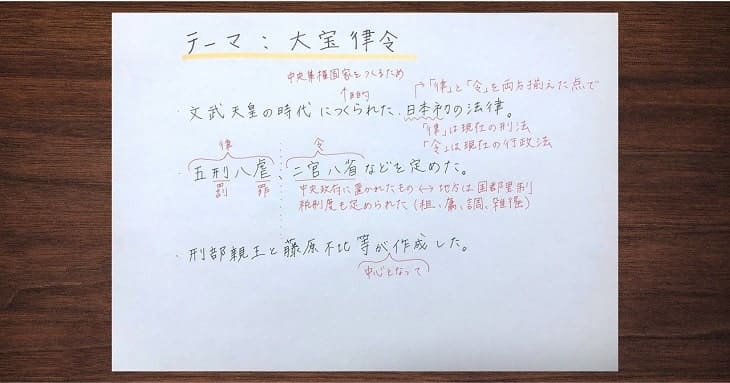 テーマ：大宝律令
中央集権国家をつくるため
↑目的
「律」と「令」を両方揃えた点で
・文武天皇の時代につくられた、日本初の法律。
「律」は現在の刑法
「令」は現在の行政法
律 令
五刑八虐、二官八省などを定めた。
罰 罪
中央政府に置かれたもの ↔ 地方は国郡里制
税制度も定められた(租、庸、調、雑徭)
・刑部親王と藤原不比等が作成した。
中心となって